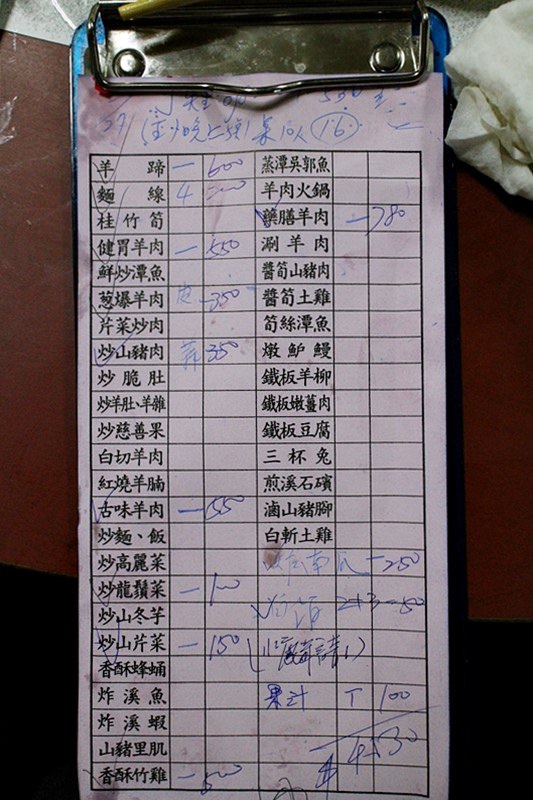 羊蹄 一 600 蒸潭吳郭魚
麵線 4 200 羊肉火鍋
桂竹筍 藥膳羊肉 一 780
健胃羊肉 一 550 涮羊肉
鮮炒潭魚 醬筍山豬肉
葱爆羊肉 一 350 醬筍土雞
芹菜炒肉 筍絲潭魚
炒山豬肉 350 燉鱸鰻
炒脆肚 鐵板羊柳
炒羊肚、羊雜 鐵板嫩薑肉
炒慈善果 鐵板豆腐
白切羊肉 三杯兔
紅燒羊腩 煎溪石礦
古味羊肉 一 550 滷山豬腳
炒麵、飯 白斬土雞
炒高麗菜 南瓜 一 250
炒龍鬚菜 一 100
炒山冬芋 2+3 50
炒山芹菜 一 150
香酥蜂蛹
炸溪魚 果汁 T 100
炸溪蝦
山豬里肌 4530
香酥竹雞 一 500